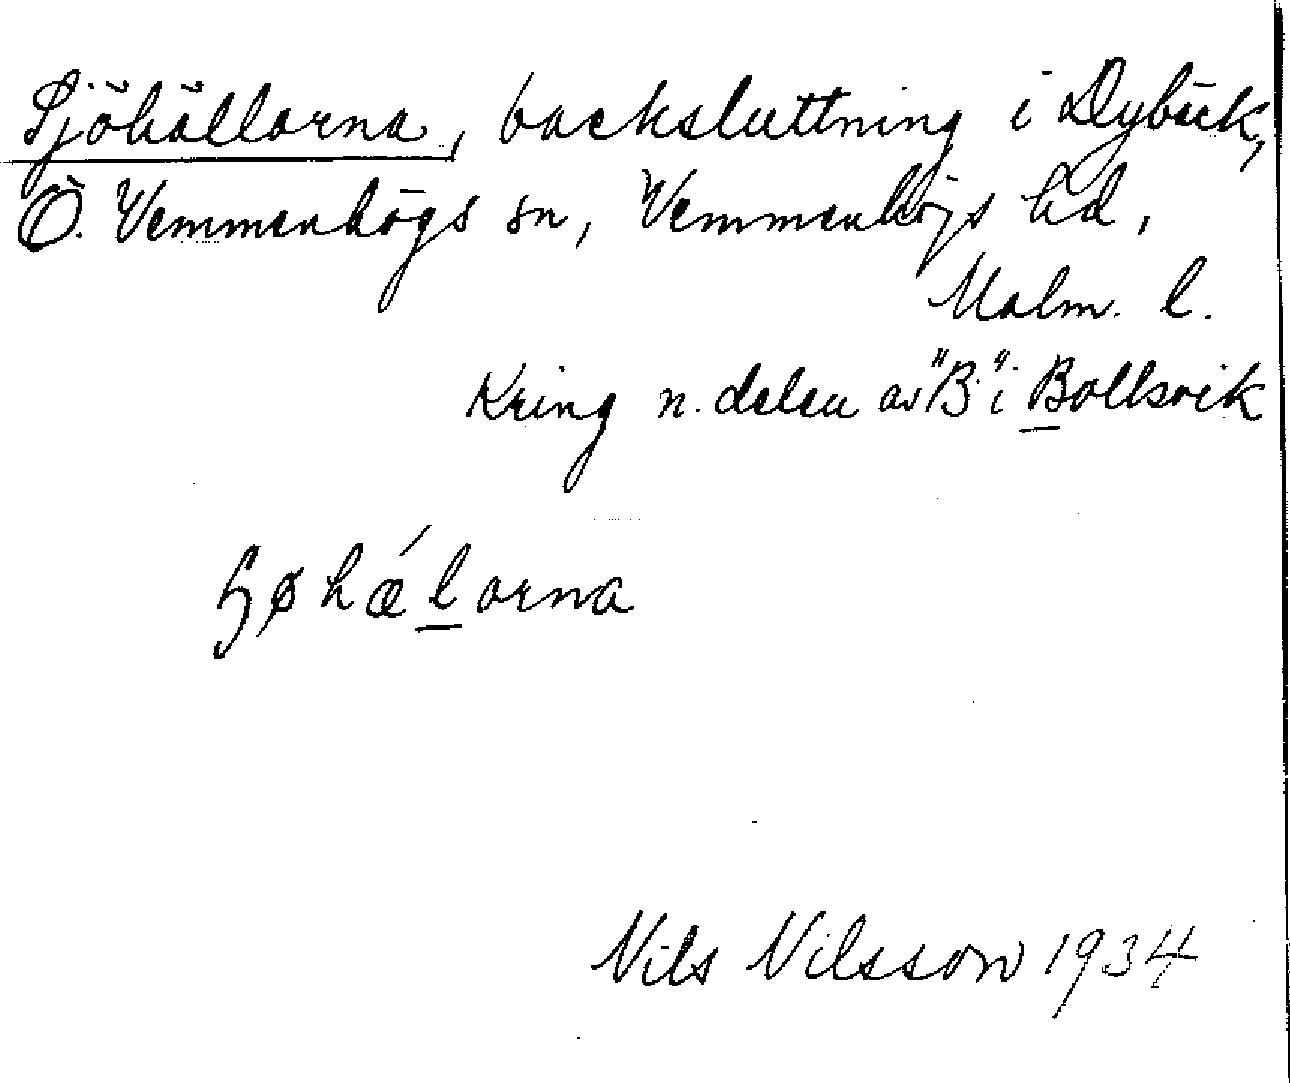 Sjöhällorna, backsluttning i Dybäck,
Ö. Vemmenhögs sn, Vemmenhögs hd,
Malm. l.
Kring n. delen av "B" i Bollsvik
hælorna
Nils Nilsson 1934